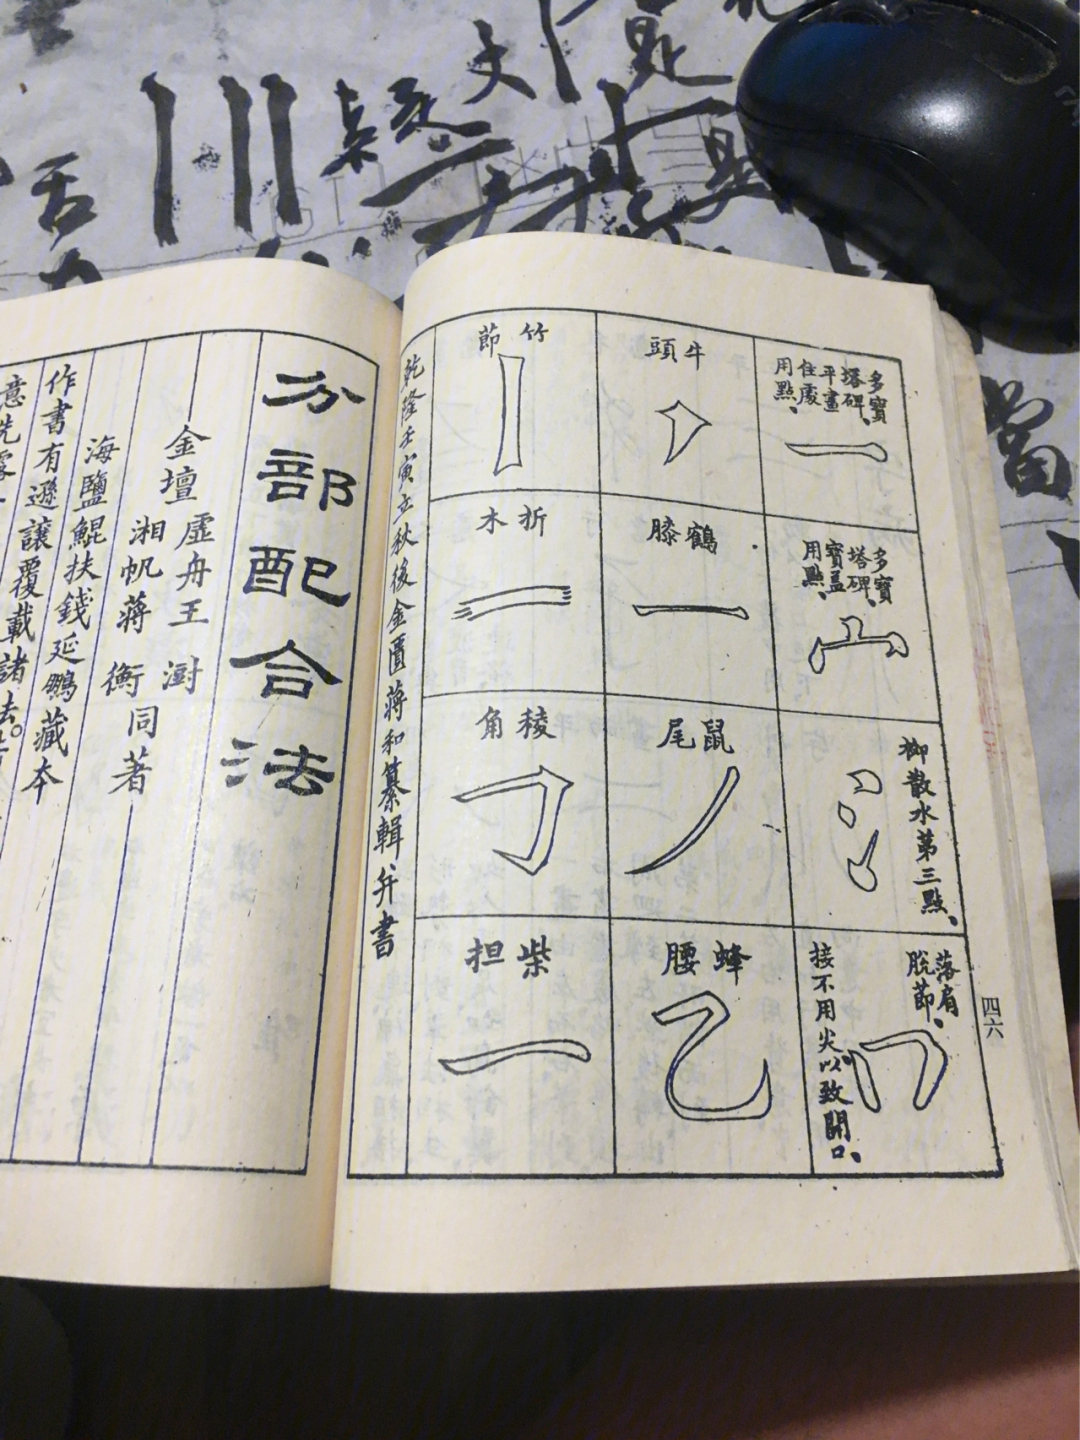 多寶
塔碑、
平畫
住處
用點、
多寶
塔碑、
寶蓋
用點、
柳散水第三點、
落肩
脫節、
接不用尖以致開口、
牛頭
鶴膝
鼠尾
蜂腰
竹節
折木
稜角
柴担
乾隆壬寅立秋後金匱蔣和纂輯并書
四六
分部配合法
金壇虛舟王澍
湘帆蔣衡同著
海鹽鯤扶錢延鵬藏本
作書有遜讓覆載諸法。
舌
川